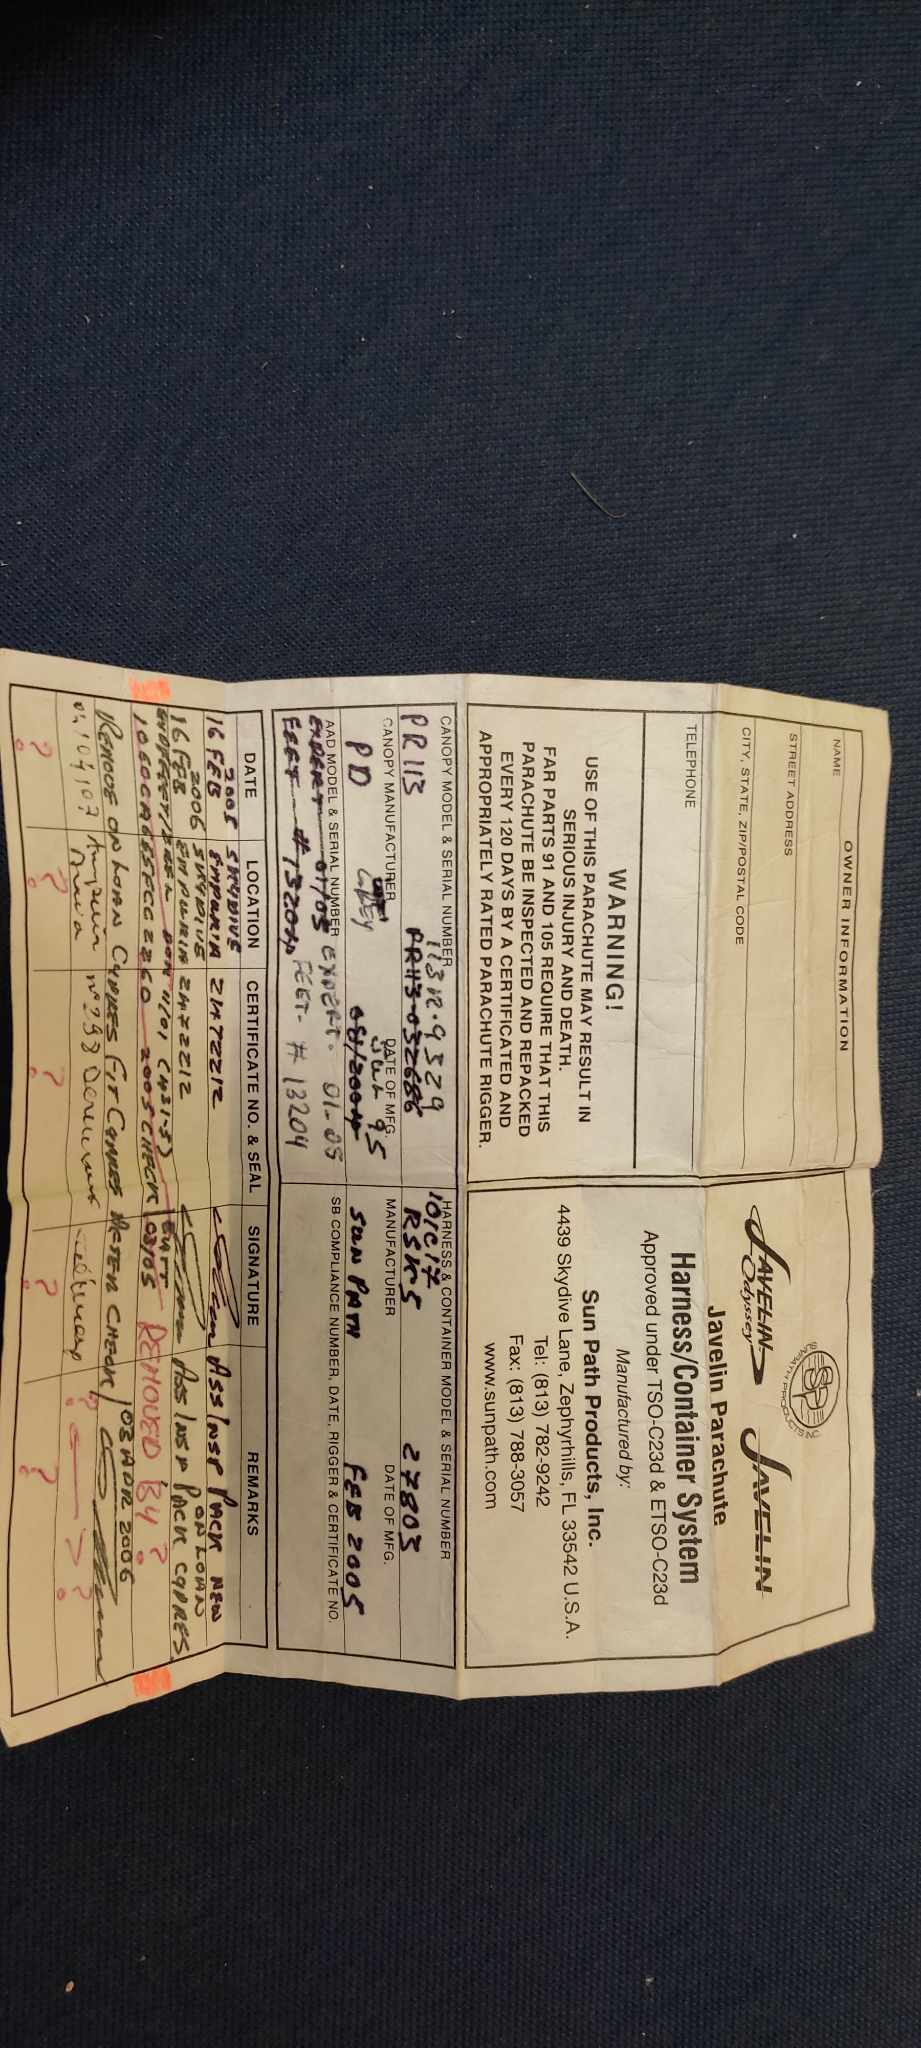 OWNER INFORMATION
NAME
STREET ADDRESS
CITY, STATE, ZIP/POSTAL CODE
TELEPHONE
WARNING!
USE OF THIS PARACHUTE MAY RESULT IN
SERIOUS INJURY AND DEATH.
FAR PARTS 91 AND 105 REQUIRE THAT THIS
PARACHUTE BE INSPECTED AND REPACKED
EVERY 120 DAYS BY A CERTIFICATED AND
APPROPRIATELY RATED PARACHUTE RIGGER.
SP
SUN PATH PRODUCTS INC
JAVELIN Odyssey JAVELIN
Javelin Parachute
Harness/Container System
Approved under TSO-C23d & ETSO-C23d
Manufactured by:
Sun Path Products, Inc.
4439 Skydive Lane, Zephyrhills, FL 33542 U.S.A.
Tel: (813) 782-9242
Fax: (813) 788-3057
www.sunpath.com
CANOPY MODEL & SERIAL NUMBER
113R-9529
PR113 PR113-032686
CANOPY MANUFACTURER DATE OF MFG.
PD
AAD MODEL & SERIAL NUMBER
EXPERT 01/05 EXPERT. 01-05
FEET # 13204 FEET- # 13204
HARNESS & CONTAINER MODEL & SERIAL NUMBER
RSK5 27803
MANUFACTURER DATE OF MFG.
SUN PATH FEB 2005
SB COMPLIANCE NUMBER, DATE, RIGGER & CERTIFICATE NO.
DATE LOCATION CERTIFICATE NO. & SEAL SIGNATURE REMARKS
2005 SKYDIVE
16 FEB EMPURIA ZH72212 ASS INSP PACK NEW
2006 SKYDIVE ON LOAN
16 FEB EMPURIA ZH72212 ASS INSP PACK CYPRES
2005 CHECK 03/05 REMOVED B4 ?
REMOVE ON LOAN CYPRES FIT CYPRES AFTER CHECK 03 APR 2006
? ?
? ? ? ? ?